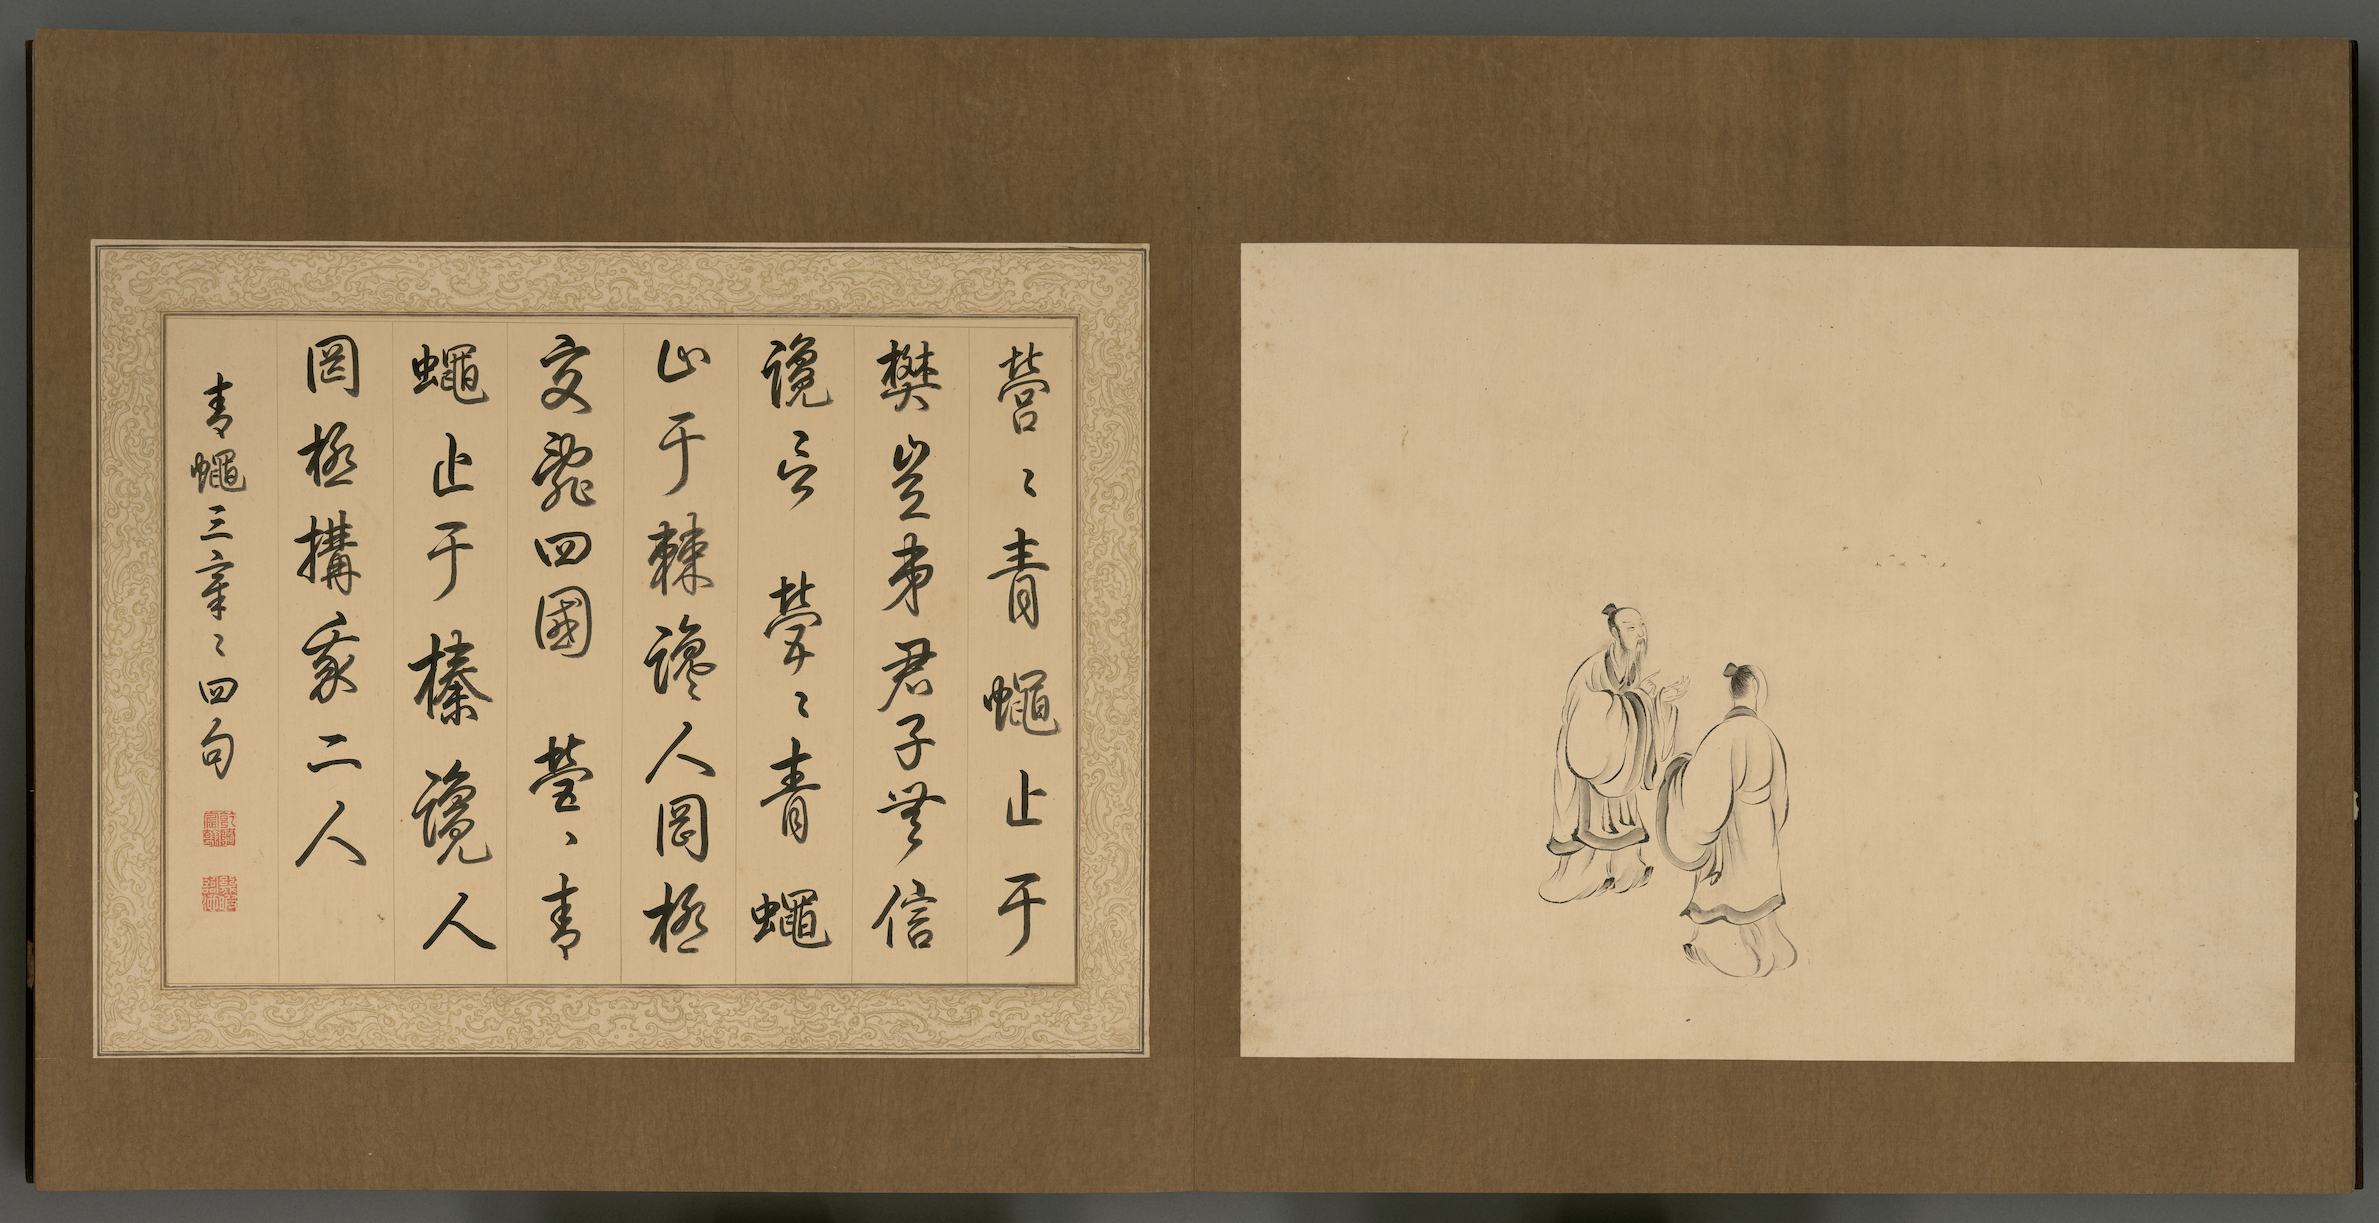 營〻青蠅止于
樊豈弟君子無信
讒言 營〻青蠅
止于棘讒人罔極
交亂四國 營〻青
蠅止于榛讒人
罔極構我二人
青蠅三章〻四句
乾隆宸翰